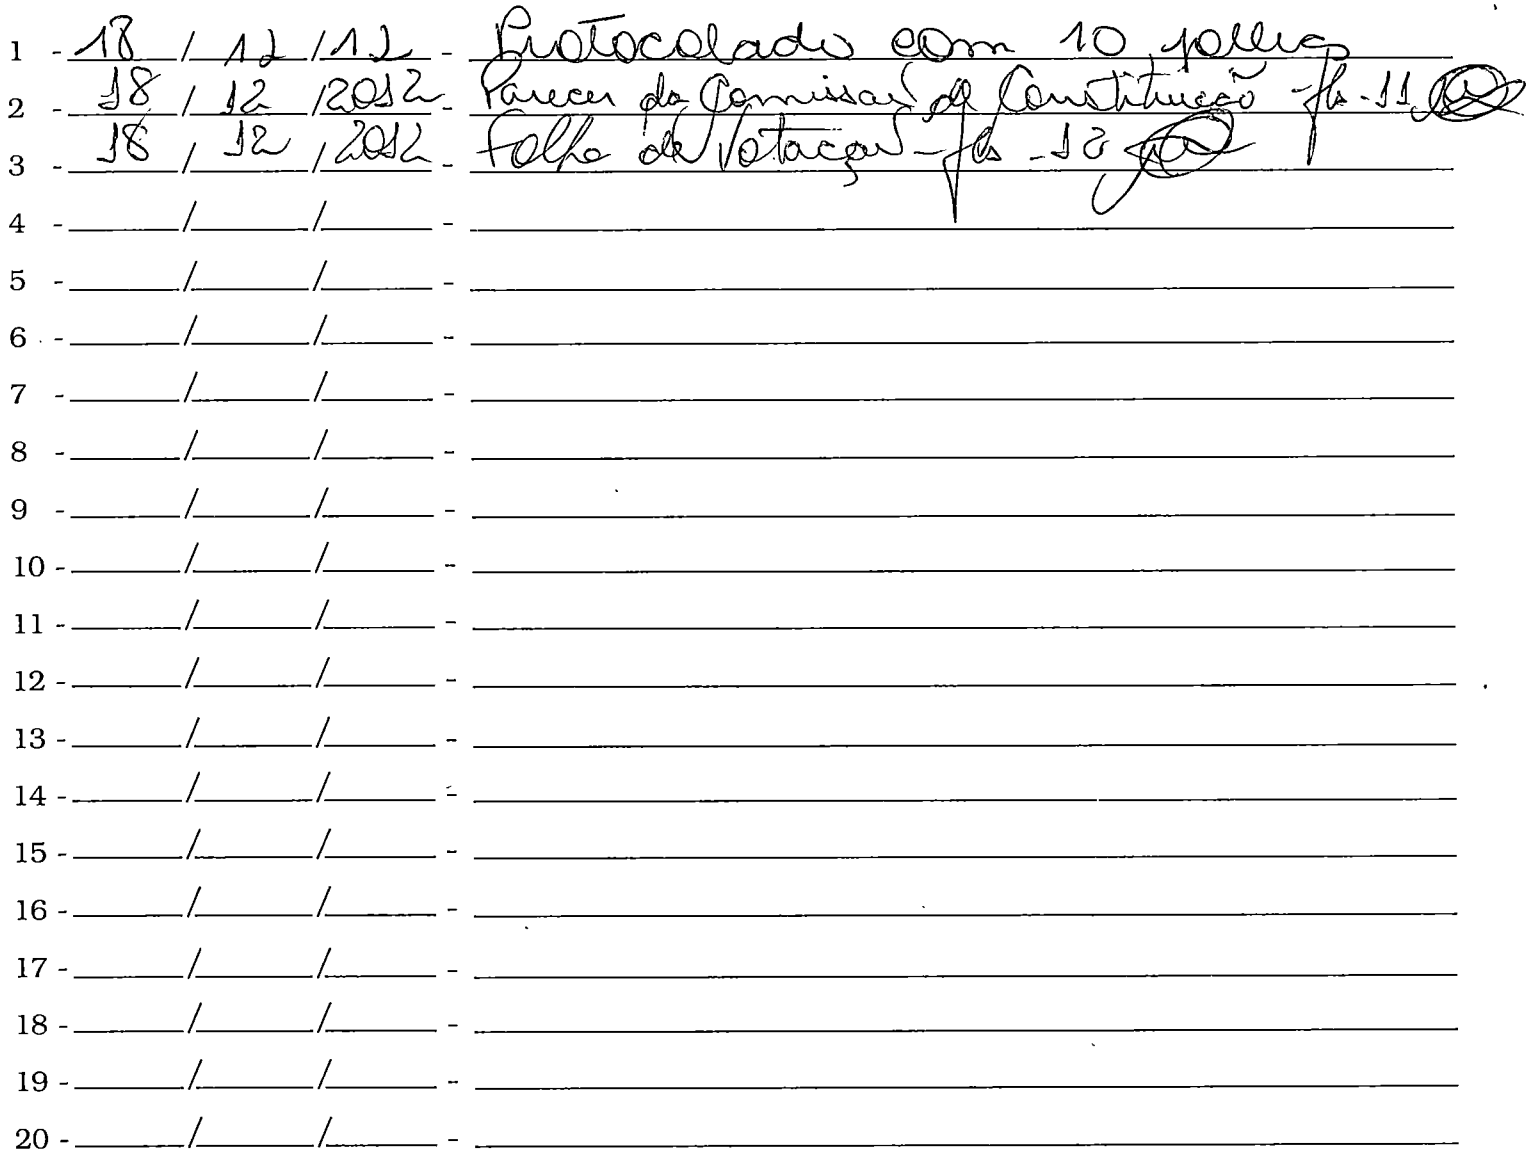 1 - 18 / 12 / 12 - Protocolado com 10 folhas
2 - 18 / 12 / 2012 - Parecer da Comissão de Constituição - fls - 11
3 - 18 / 12 / 2012 - Folha de Votação - fls - 12
4 - / / -
5 - / / -
6 - / / -
7 - / / -
8 - / / -
9 - / / -
10 - / / -
11 - / / -
12 - / / -
13 - / / -
14 - / / -
15 - / / -
16 - / / -
17 - / / -
18 - / / -
19 - / / -
20 - / / -